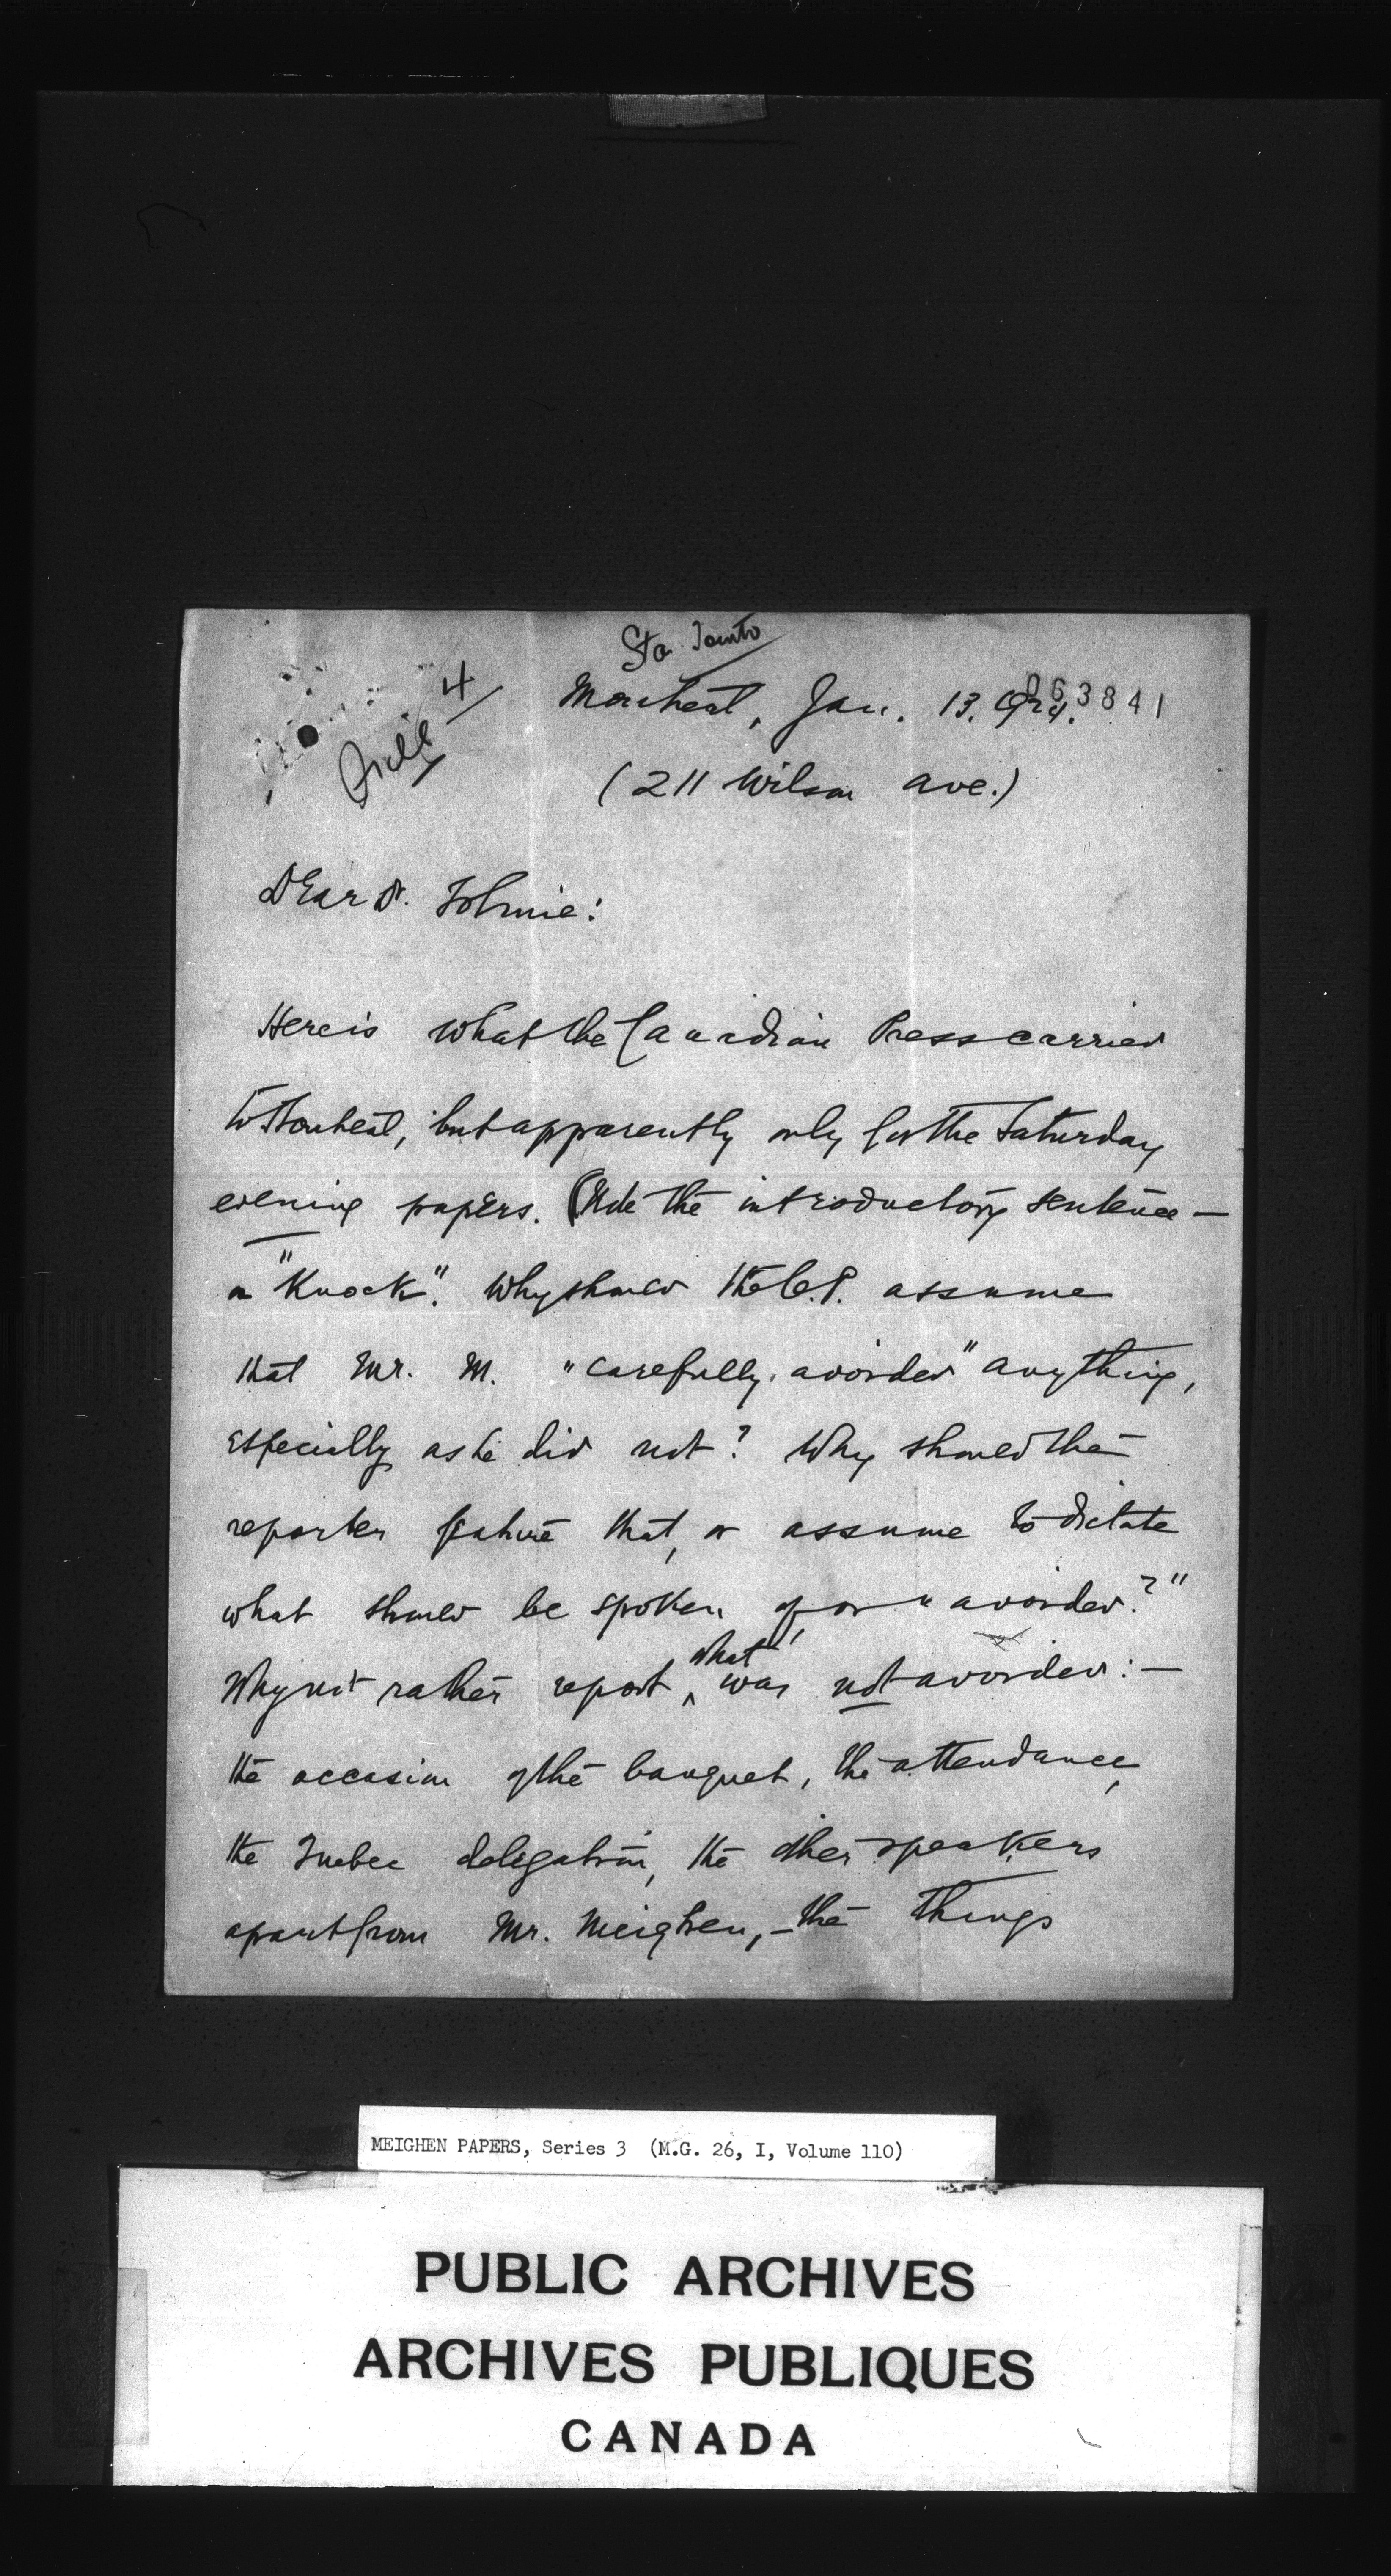 4
063841
Montreal, Jan. 13. 1924.
(211 Wilson Ave.)
Dear Dr. Tolmie:
Here is what the Canadian Press carried
to Montreal, but apparently only for the Saturday
evening papers. (Note the introductory sentence —
a "Knock". Why should the C.P. assume
that Mr. M. "carefully avoided" anything,
especially as he did not? Why should the
reporter feature that, or assume to dictate
what should be spoken of, or "avoided?"
Why not rather report what was not avoided: —
the occasion of the banquet, the attendance,
the Quebec delegation, the other speakers
apart from Mr. Meighen, – the things
MEIGHEN PAPERS, Series 3 (M.G. 26, I, Volume 110)
PUBLIC ARCHIVES
ARCHIVES PUBLIQUES
CANADA